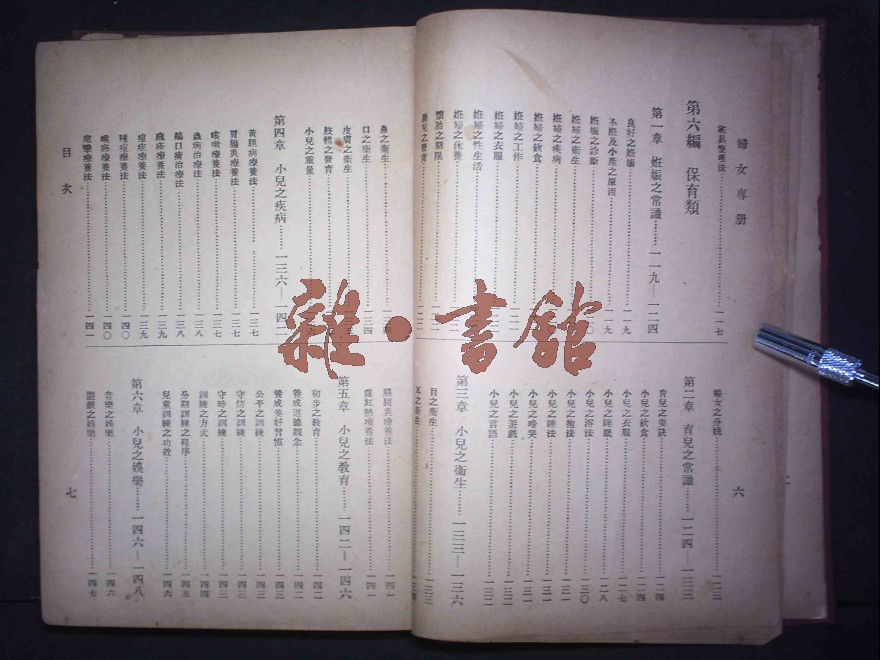 婦女專册
家具整理法 一一七
第六編 保育類
第一章 姙娠之常識 一一九—一二四
良好之姙娠 一一九
不姙及小產之原因 一一九
姙娠之診斷
姙婦之衛生
姙婦之疾病
姙婦之飲食
姙婦之工作
姙婦之衣服
姙婦之性生活
姙婦之休養
期限
之發育
婦女之分娩 一二三
第二章 育兒之常識 一二四—一三三
育兒之要訣 一二四
小兒之飲食 一二四
小兒之衣服 一二七
小兒之睡眠 一二八
小兒之浴法 一三〇
小兒之抱法 一三一
小兒之睡法 一三一
小兒之啼哭 一三一
小兒之遊戲 一三二
小兒之言語 一三二
第三章 小兒之衛生 一三三—一三六
目之衛生 一三三
六
雜·書館
耳之衛生
鼻之衛生
口之衛生 一三四
皮膚之衛生
肢體之發育
小兒之重量
第四章 小兒之疾病 一三六—一四二
黃疸病療養法 一三七
胃腸炎療養法 一三七
咳嗽療養法 一三七
蟲病治療法 一三八
鵝口瘡治療法 一三八
療養法 一三九
痘症療養法 一三九
療養法 一四〇
療養法 一四〇
療養法 一四一
腦膜炎療養法 一四一
猩紅熱療養法 一四一
第五章 小兒之教育 一四二—一四六
初步之教育 一四二
養成道德觀念 一四二
養成美好習慣 一四三
公平之訓練 一四三
守信之訓練 一四三
守時之訓練 一四三
訓練之方式 一四四
分期訓練之程序 一四五
兒童訓練之功效 一四六
第六章 小兒之娛樂 一四六—一四八
音樂之娛樂 一四六
遊戲之娛樂 一四七
目次
七